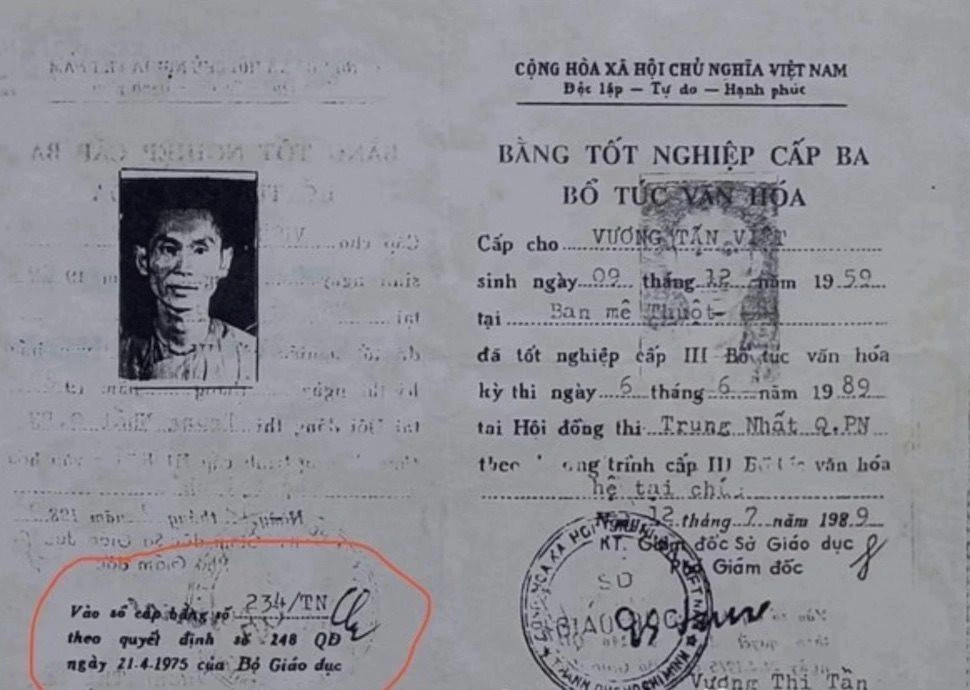 CỘNG HÒA XÃ HỘI CHỦ NGHĨA VIỆT NAM
Độc lập — Tự do — Hạnh phúc
BẰNG TỐT NGHIỆP CẤP BA
BỔ TÚC VĂN HÓA
Cấp cho VƯƠNG TẤN VIỆT
sinh ngày 09 tháng 12 năm 1959
tại Ban mê Thuột-
đã tốt nghiệp cấp III Bổ túc văn hóa
kỳ thi ngày 6 tháng 6 năm 1989
tại Hội đồng thi Trung Nhất Q.PN
theo trình cấp III văn hóa
hệ tại
12 tháng 7 năm 1989
KT. Giám đốc Sở Giáo dục
Phó Giám đốc
SỞ
GIÁO DỤC
Vương Thị Tần
Vào sổ cấp bằng số 234/TN
theo quyết định số 248 QĐ
ngày 21.4.1975 của Bộ Giáo dục